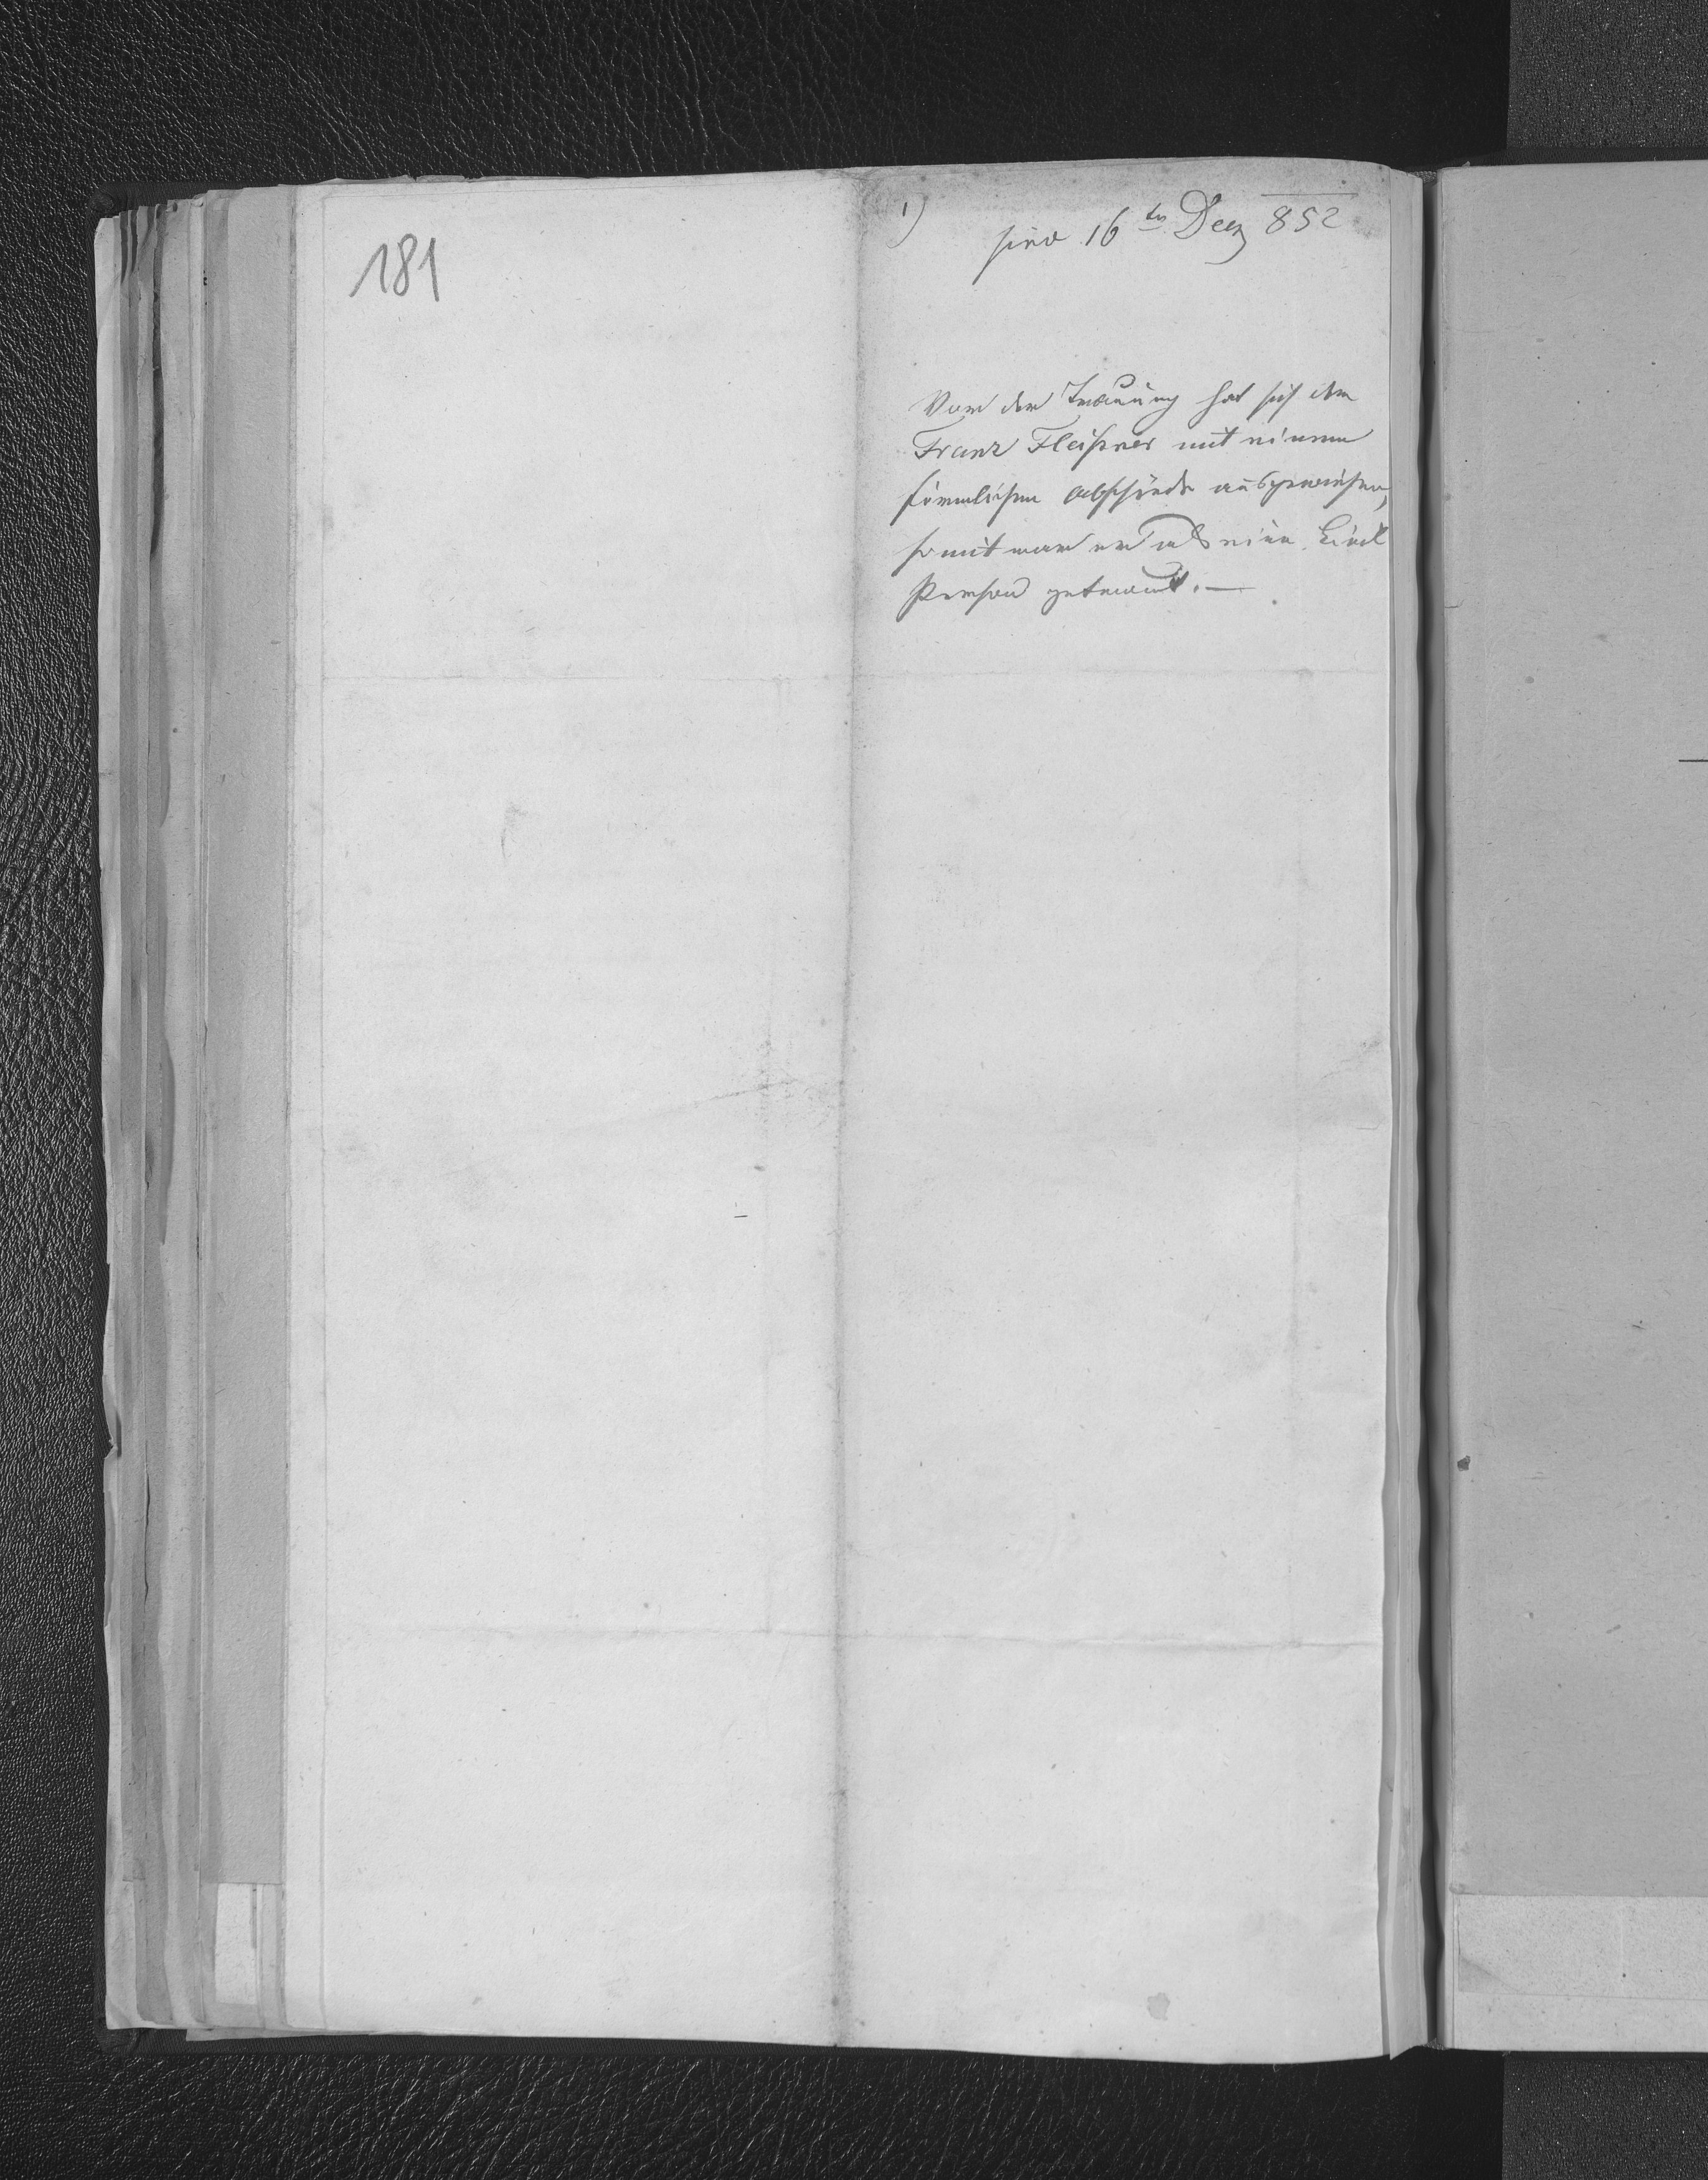 181
1)
16ten Dez 852
Vor der Trauung hat sich der
Franz Fleißner mit einem
förmlichen Abschiede ausgewiesen,
somit war er als eine Civil
Person getraut. —